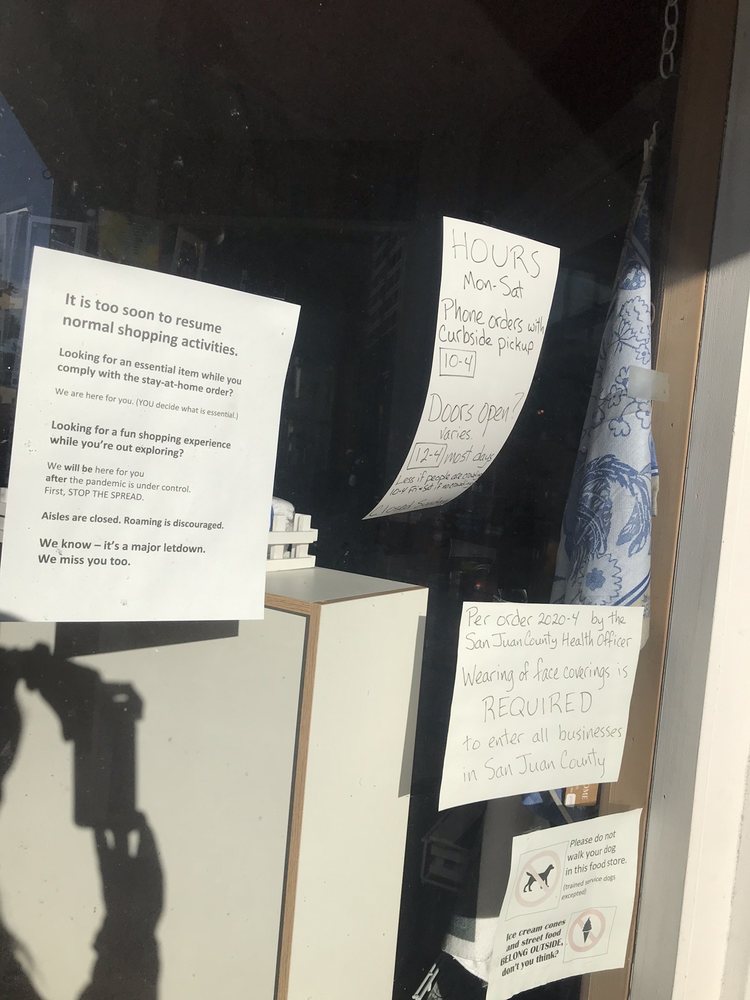 It is too soon to resume
normal shopping activities.
Looking for an essential item while you
comply with the stay-at-home order?
We are here for you. (YOU decide what is essential.)
Looking for a fun shopping experience
while you're out exploring?
We will be here for you
after the pandemic is under control.
First, STOP THE SPREAD.
Aisles are closed. Roaming is discouraged.
We know – it's a major letdown.
We miss you too.
HOURS
Mon-Sat
Phone orders with
Curbside pickup
10-4
Doors open?
varies.
12-4 most days
Less if people are
10-4 Fri + Sat if
Closed
Per order 2020-4 by the
San Juan County Health Officer
Wearing of face coverings is
REQUIRED
to enter all businesses
in San Juan County
Please do not
walk your dog
in this food store.
(trained service dogs
excepted)
Ice cream cones
and street food
BELONG OUTSIDE,
don't you think?